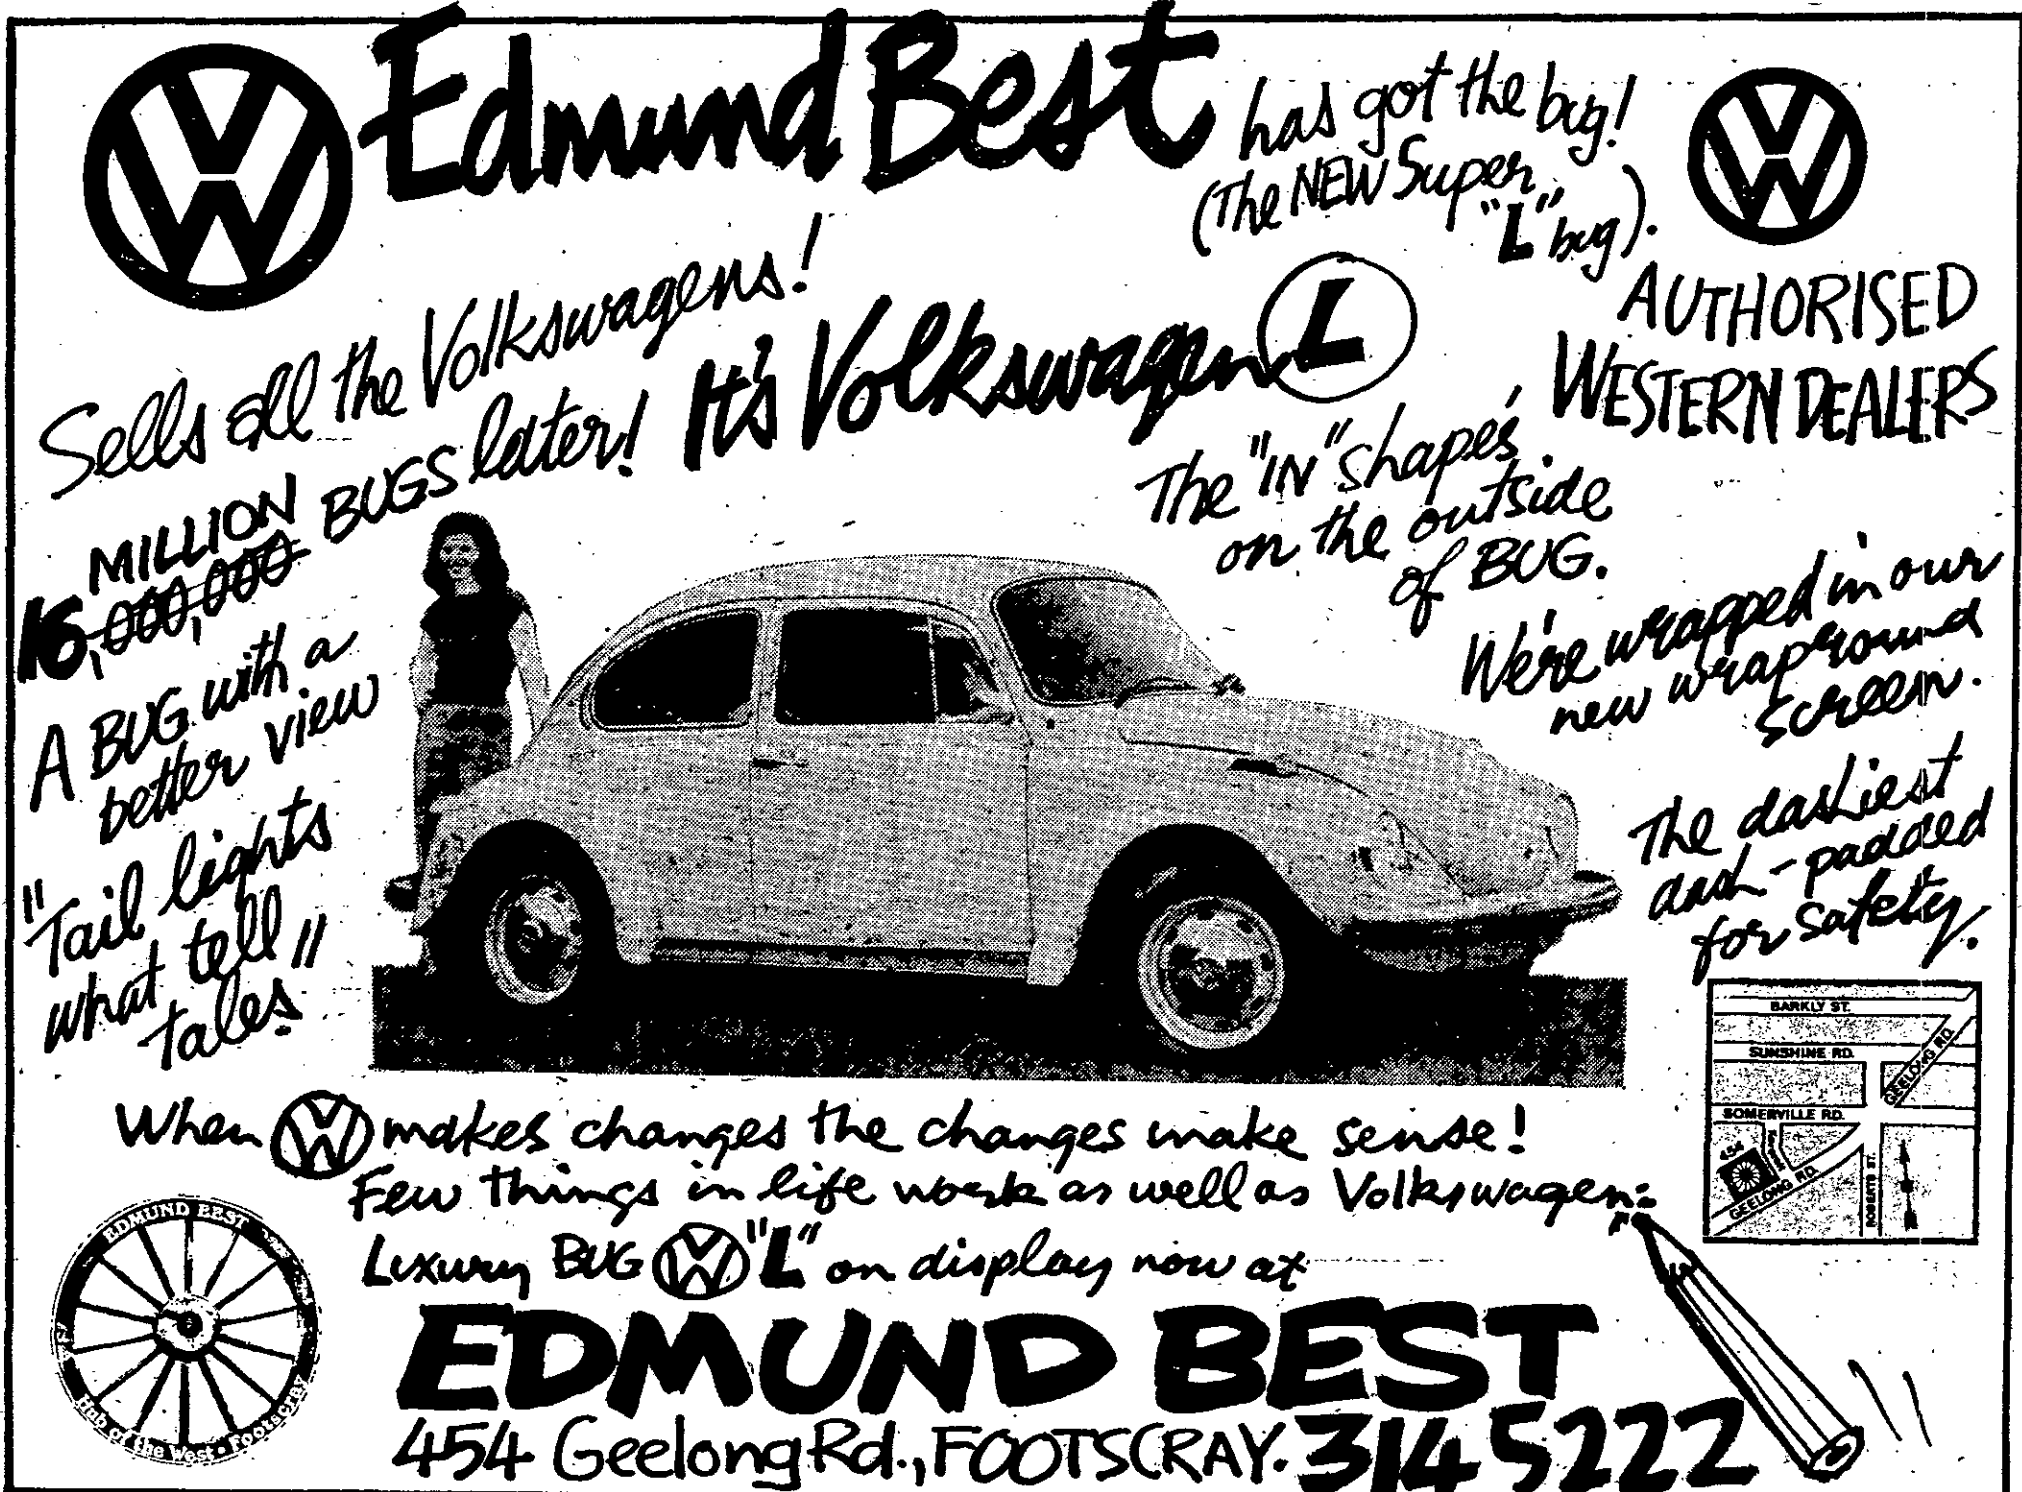 Edmund Best
has got the bug!
(The NEW Super
"L" bug).
AUTHORISED
WESTERN DEALERS
Sells all the Volkswagens!
MILLION
16,000,000 BUGS later!
It's Volkswagen L
The "IN" shape's
on the outside
of BUG.
We're wrapped in our
new wrapround
screen.
A BUG with a
better view
The dashiest
dash-padded
for safety.
"Tail lights
what tell
tales"
BARKLY ST.
SUNSHINE RD.
GEELONG RD.
SOMERVILLE RD.
454
GEELONG RD.
ROBERTS ST.
When VW makes changes the changes make sense!
Few things in life work as well as Volkswagen:
Luxury BUG VW "L" on display now at
EDMUND BEST
454 Geelong Rd., FOOTSCRAY. 314 5222
EDMUND BEST
Hub of the West • Footscray